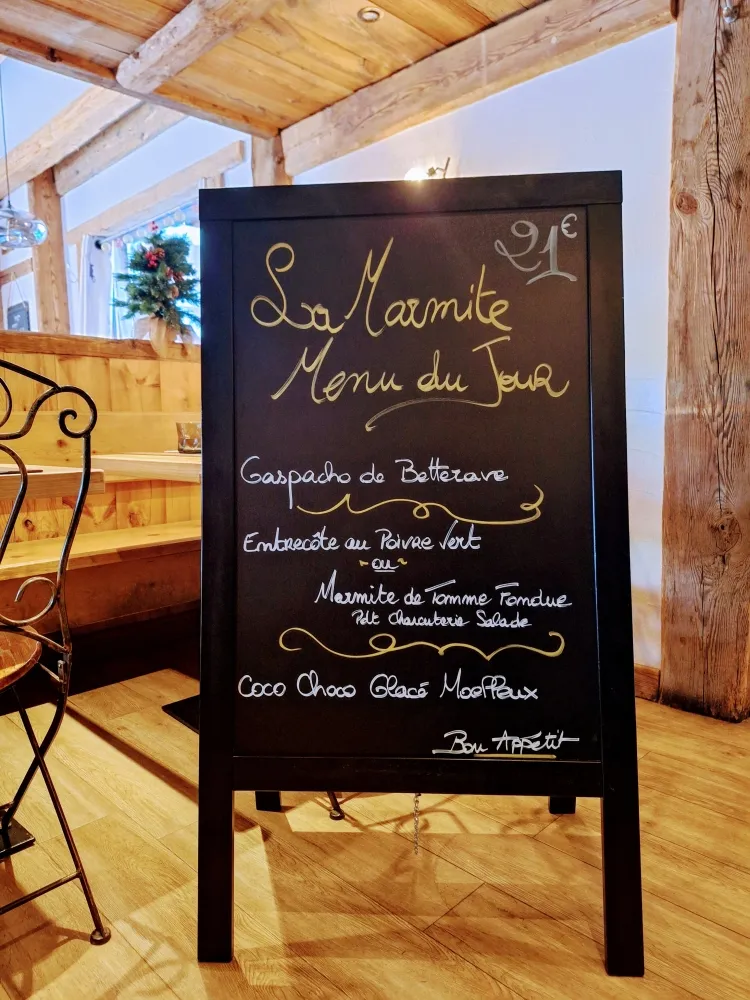 21€
La Marmite
Menu du Jour
Gaspacho de Betterave
Entrecôte au Poivre Vert
ou
Marmite de Tomme Fondue
Pdt Charcuterie Salade
Coco Choco Glacé Moelleux
Bon Appétit